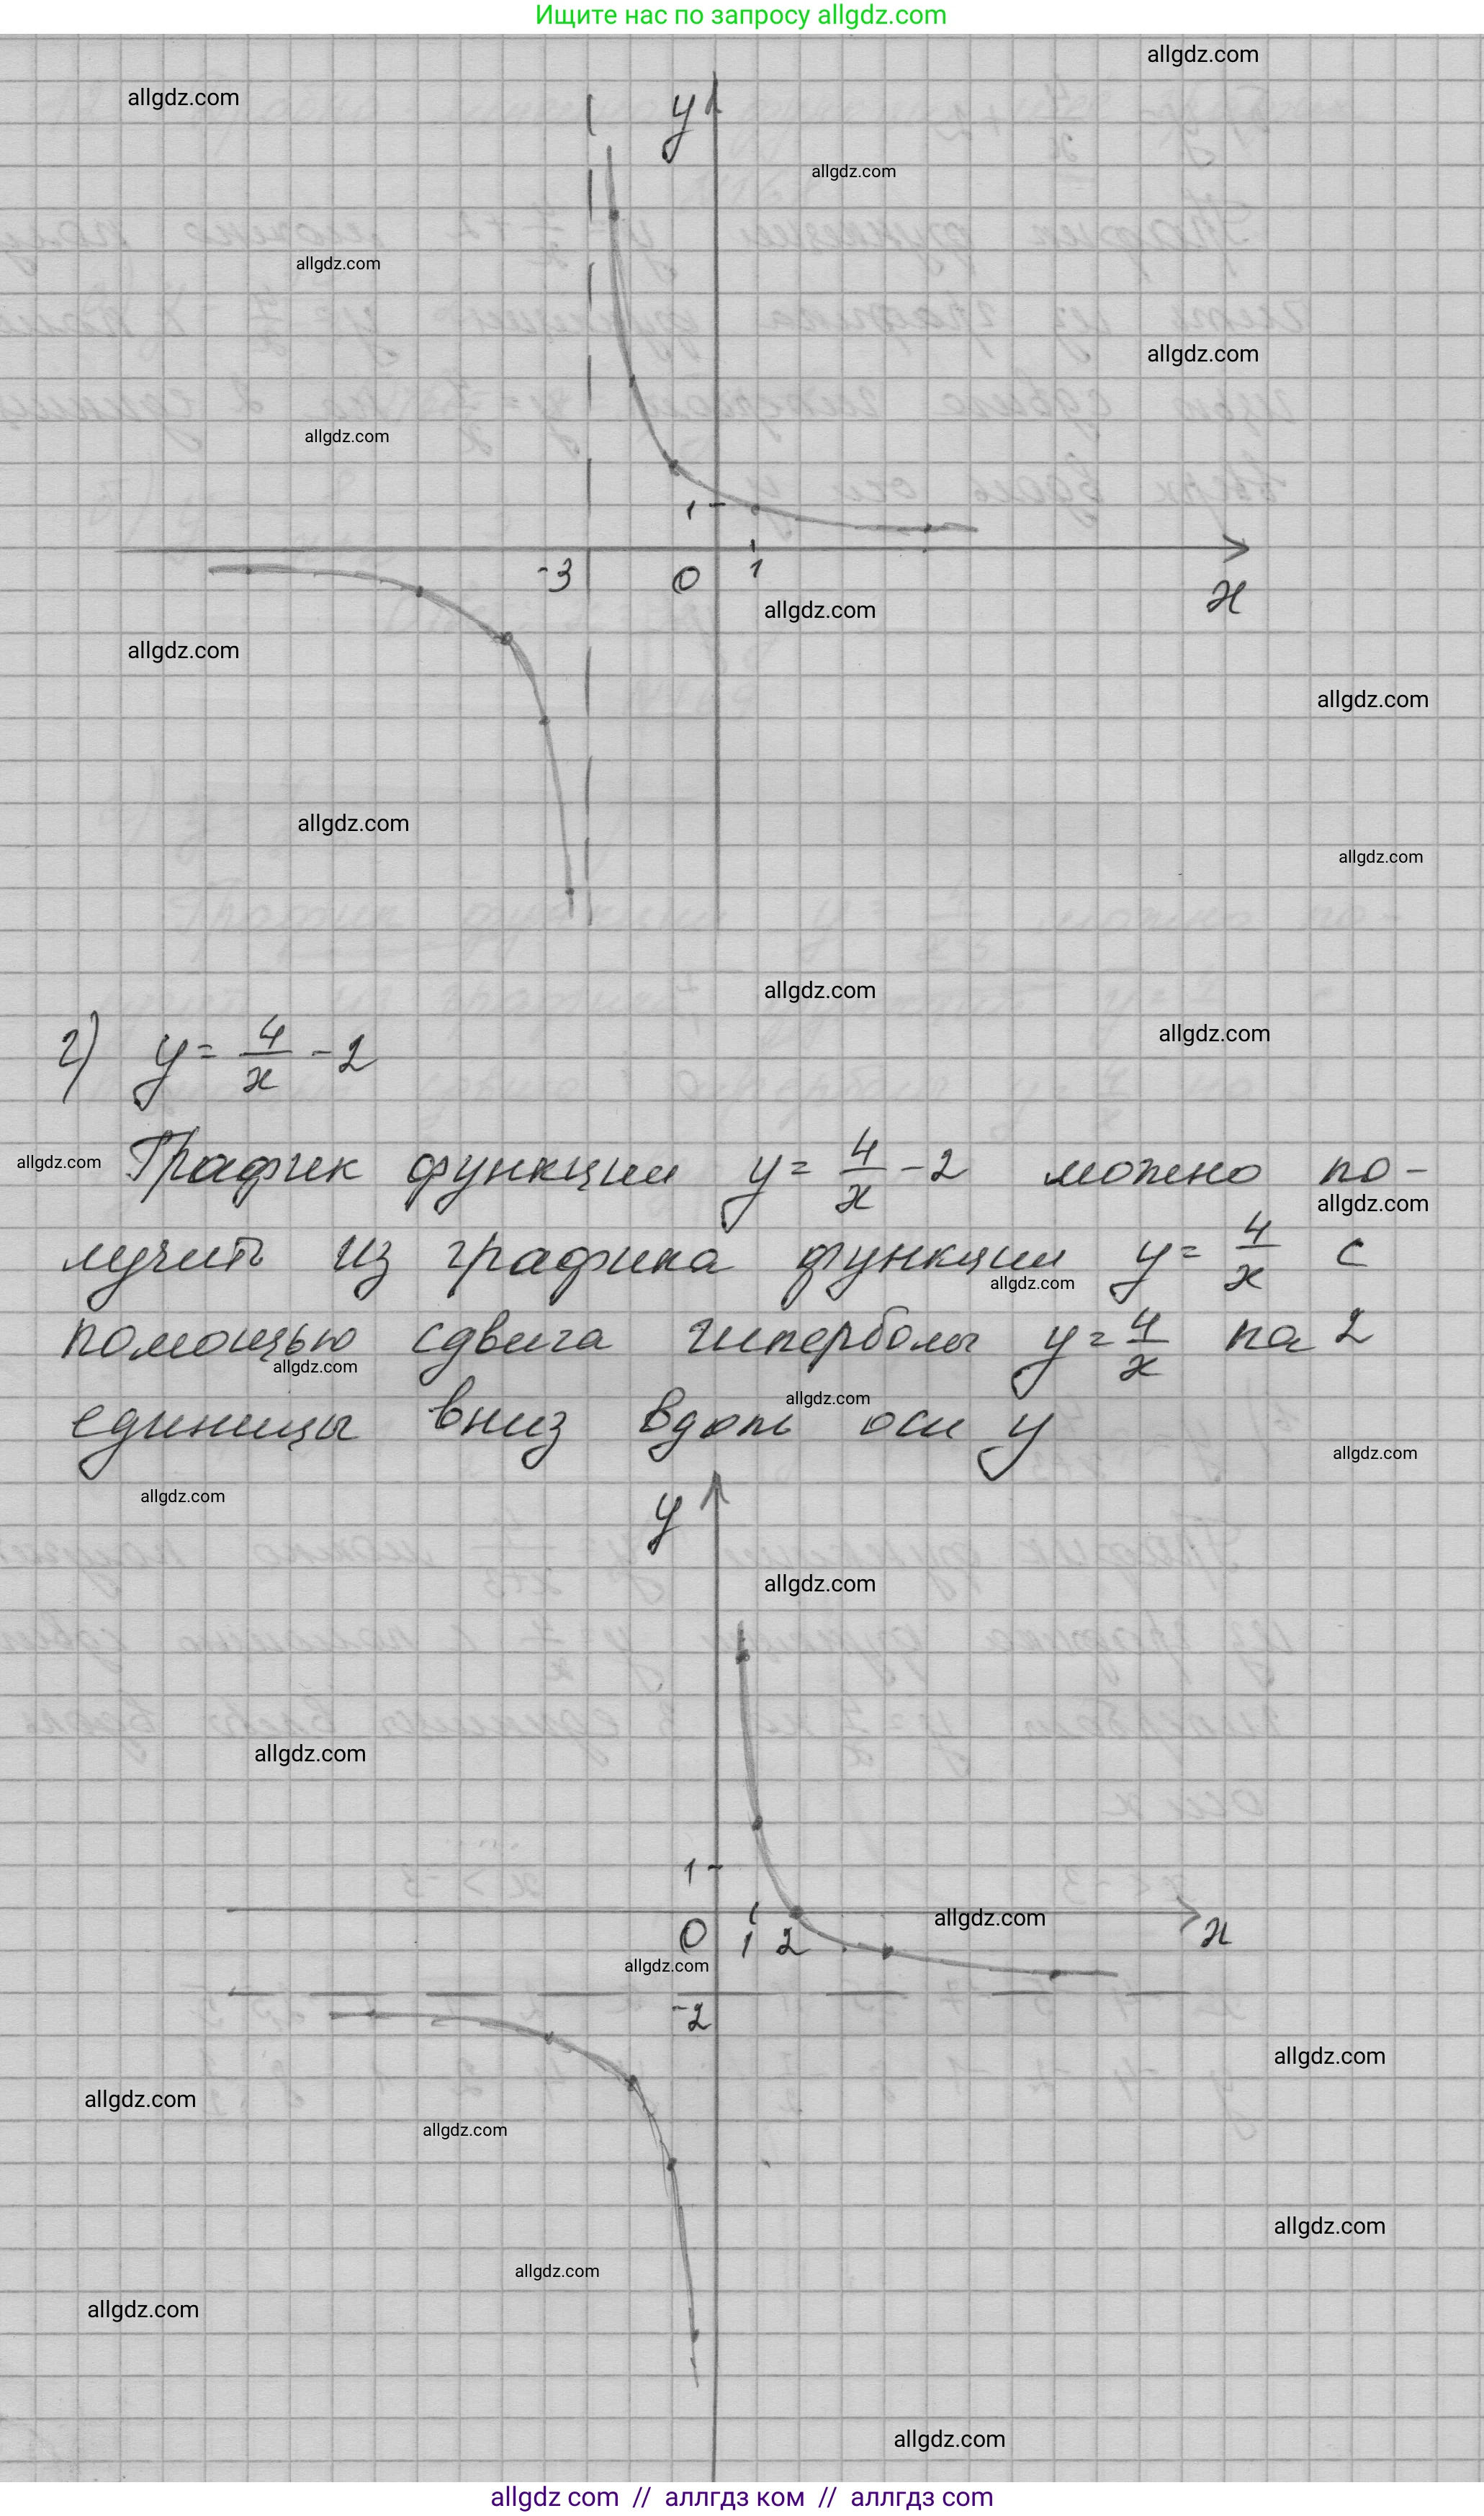 Ищите нас по запросу allgdz.com
allgdz.com
allgdz.com
y
allgdz.com
allgdz.com
allgdz.com
allgdz.com
1
-3 0 1
x
allgdz.com
allgdz.com
allgdz.com
allgdz.com
allgdz.com
allgdz.com
allgdz.com
г) y = 4/x - 2
График функции y = 4/x - 2 можно по-
allgdz.com
allgdz.com
лучить из графика функции y = 4/x с
allgdz.com
помощью сдвига гиперболы y = 4/x на 2
allgdz.com
allgdz.com
единицы вниз вдоль оси y
allgdz.com
allgdz.com
y
allgdz.com
allgdz.com
1
allgdz.com
0 1 2
x
allgdz.com
-2
allgdz.com
allgdz.com
allgdz.com
allgdz.com
allgdz.com
allgdz.com
allgdz.com
allgdz com // аллгдз ком // аллгдз com